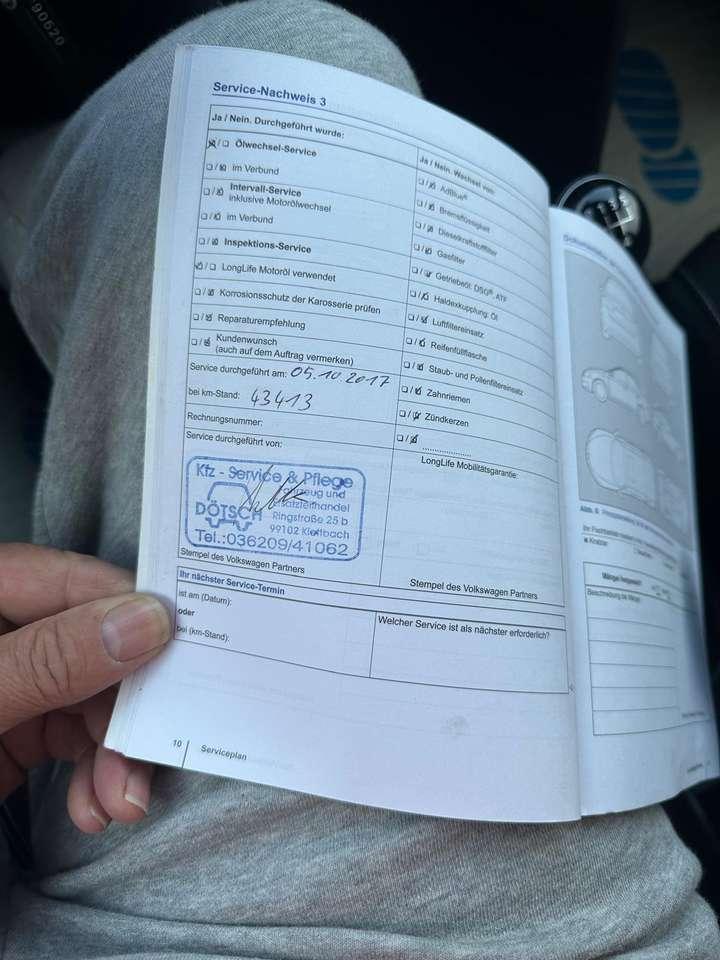 90620
Service-Nachweis 3
Ja / Nein. Durchgeführt wurde:
Ölwechsel-Service
im Verbund
Intervall-Service
inklusive Motorölwechsel
im Verbund
Inspektions-Service
LongLife Motoröl verwendet
Korrosionsschutz der Karosserie prüfen
Reparaturempfehlung
Kundenwunsch
(auch auf dem Auftrag vermerken)
Service durchgeführt am: 05.10.2017
bei km-Stand: 43413
Rechnungsnummer:
Service durchgeführt von:
Kfz - Service & Pflege
Fahrzeug und
Ersatzteilhandel
DÖTSCH
Ringstraße 25 b
99102 Klettbach
Tel.:036209/41062
Stempel des Volkswagen Partners
Ja / Nein. Wechsel von:
AdBlue®
Bremsflüssigkeit
Dieselkraftstofffilter
Gasfilter
Getriebeöl: DSG®, ATF
Haldexkupplung: Öl
Luftfiltereinsatz
Reifenfüllflasche
Staub- und Pollenfiltereinsatz
Zahnriemen
Zündkerzen
LongLife Mobilitätsgarantie:
Stempel des Volkswagen Partners
Ihr nächster Service-Termin
ist am (Datum):
oder
bei (km-Stand):
Welcher Service ist als nächster erforderlich?
10
Serviceplan
Abb. 6
Kratzer
Mängel festgestellt?
Beschreibung der Mängel